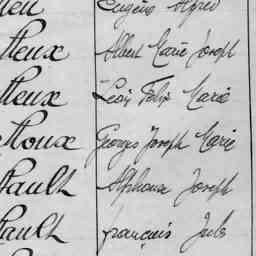 Eugène Alfred
lleux Albert Marie Joseph
lleux Léon Félix Marie
lloux Georges Joseph Marie
hault Alphonse Joseph
hault François Jules